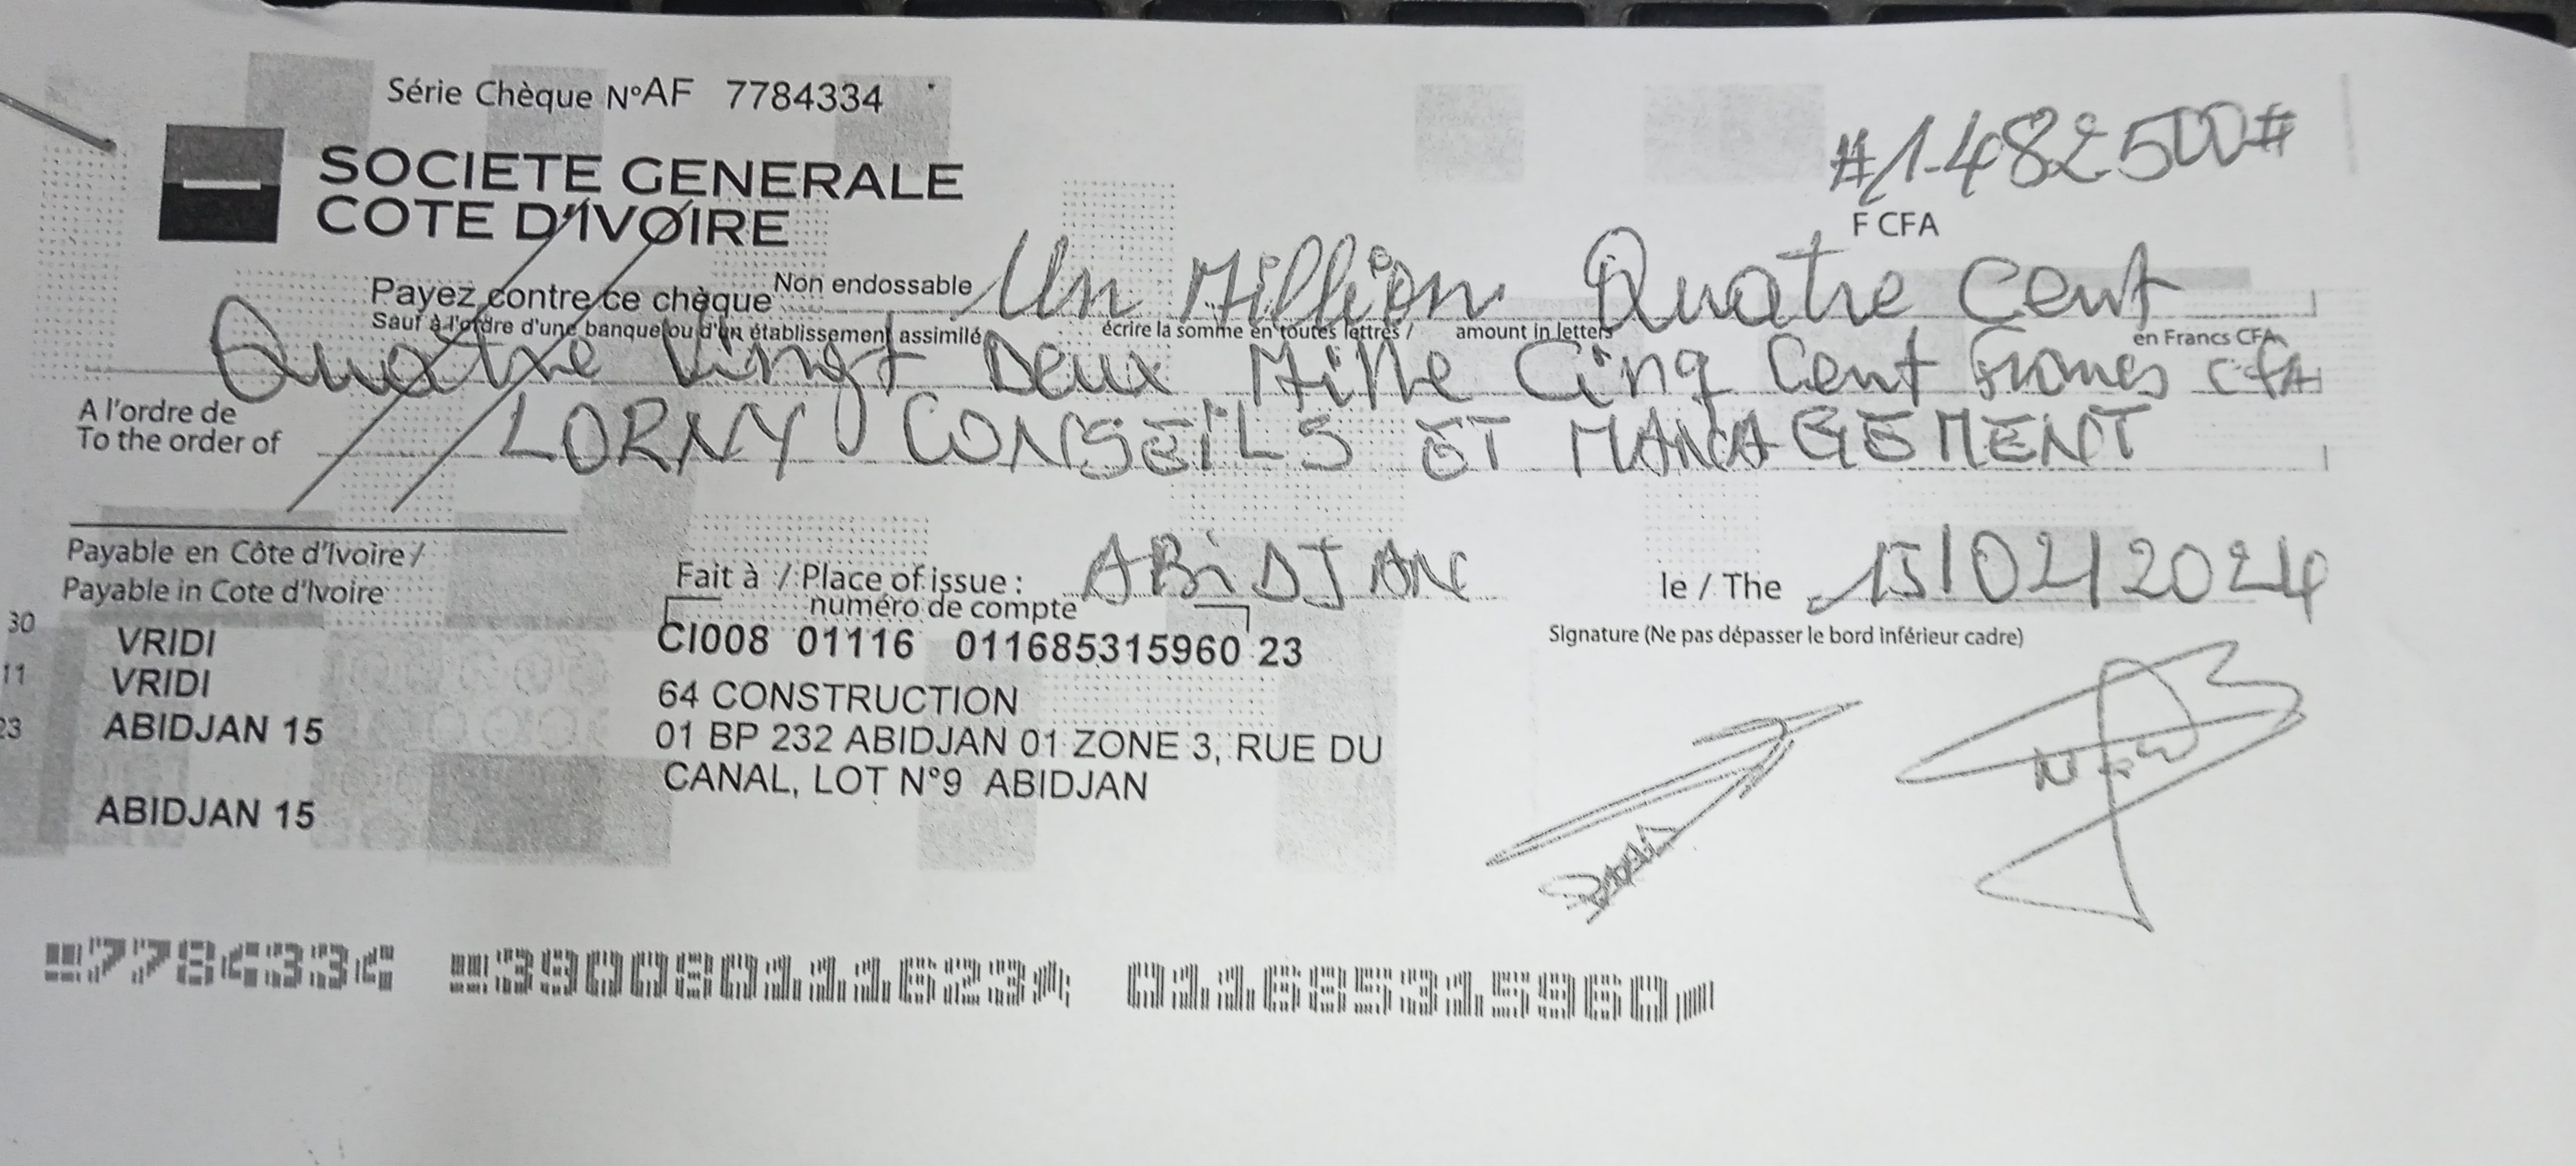 Série Chèque N°AF 7784334
#1.482500#
SOCIETE GENERALE
COTE D'IVOIRE
F CFA
Payez contre ce chèque Non endossable Un Million Quatre Cent
Sauf à l'ordre d'une banque ou d'un établissement assimilé écrire la somme en toutes lettres / amount in letters en Francs CFA
Quatre Vingt Deux Mille Cinq Cent Francs CFA
A l'ordre de
To the order of
LORNY CONSEILS ET MANAGEMENT
Payable en Côte d'Ivoire /
Payable in Cote d'Ivoire
Fait à / Place of issue : ABIDJAN
le / The 15/02/2024
numéro de compte
Signature (Ne pas dépasser le bord inférieur cadre)
30 VRIDI
CI008 01116 011685315960 23
11 VRIDI
64 CONSTRUCTION
23 ABIDJAN 15
01 BP 232 ABIDJAN 01 ZONE 3, RUE DU
CANAL, LOT N°9 ABIDJAN
ABIDJAN 15
7784334 390080111623 011685315960